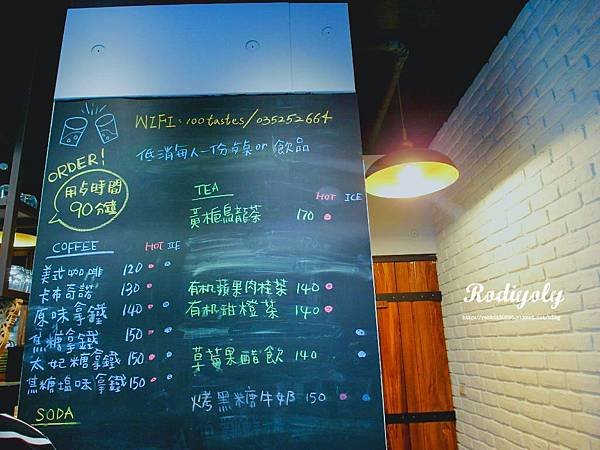 WIFI: 100tastes/035252664
低消每人一份餐or飲品
ORDER!
用餐時間
90分鐘
COFFEE HOT ICE
美式咖啡 120
卡布奇諾 130
原味拿鐵 140
焦糖拿鐵 150
太妃糖拿鐵 150
焦糖塩味拿鐵 150
SODA
TEA
HOT ICE
黃梔烏龍茶 170
有机蘋果肉桂茶 140
有机甜橙茶 140
草莓果醋飲 140
烤黑糖牛奶 150
Rodiyoly